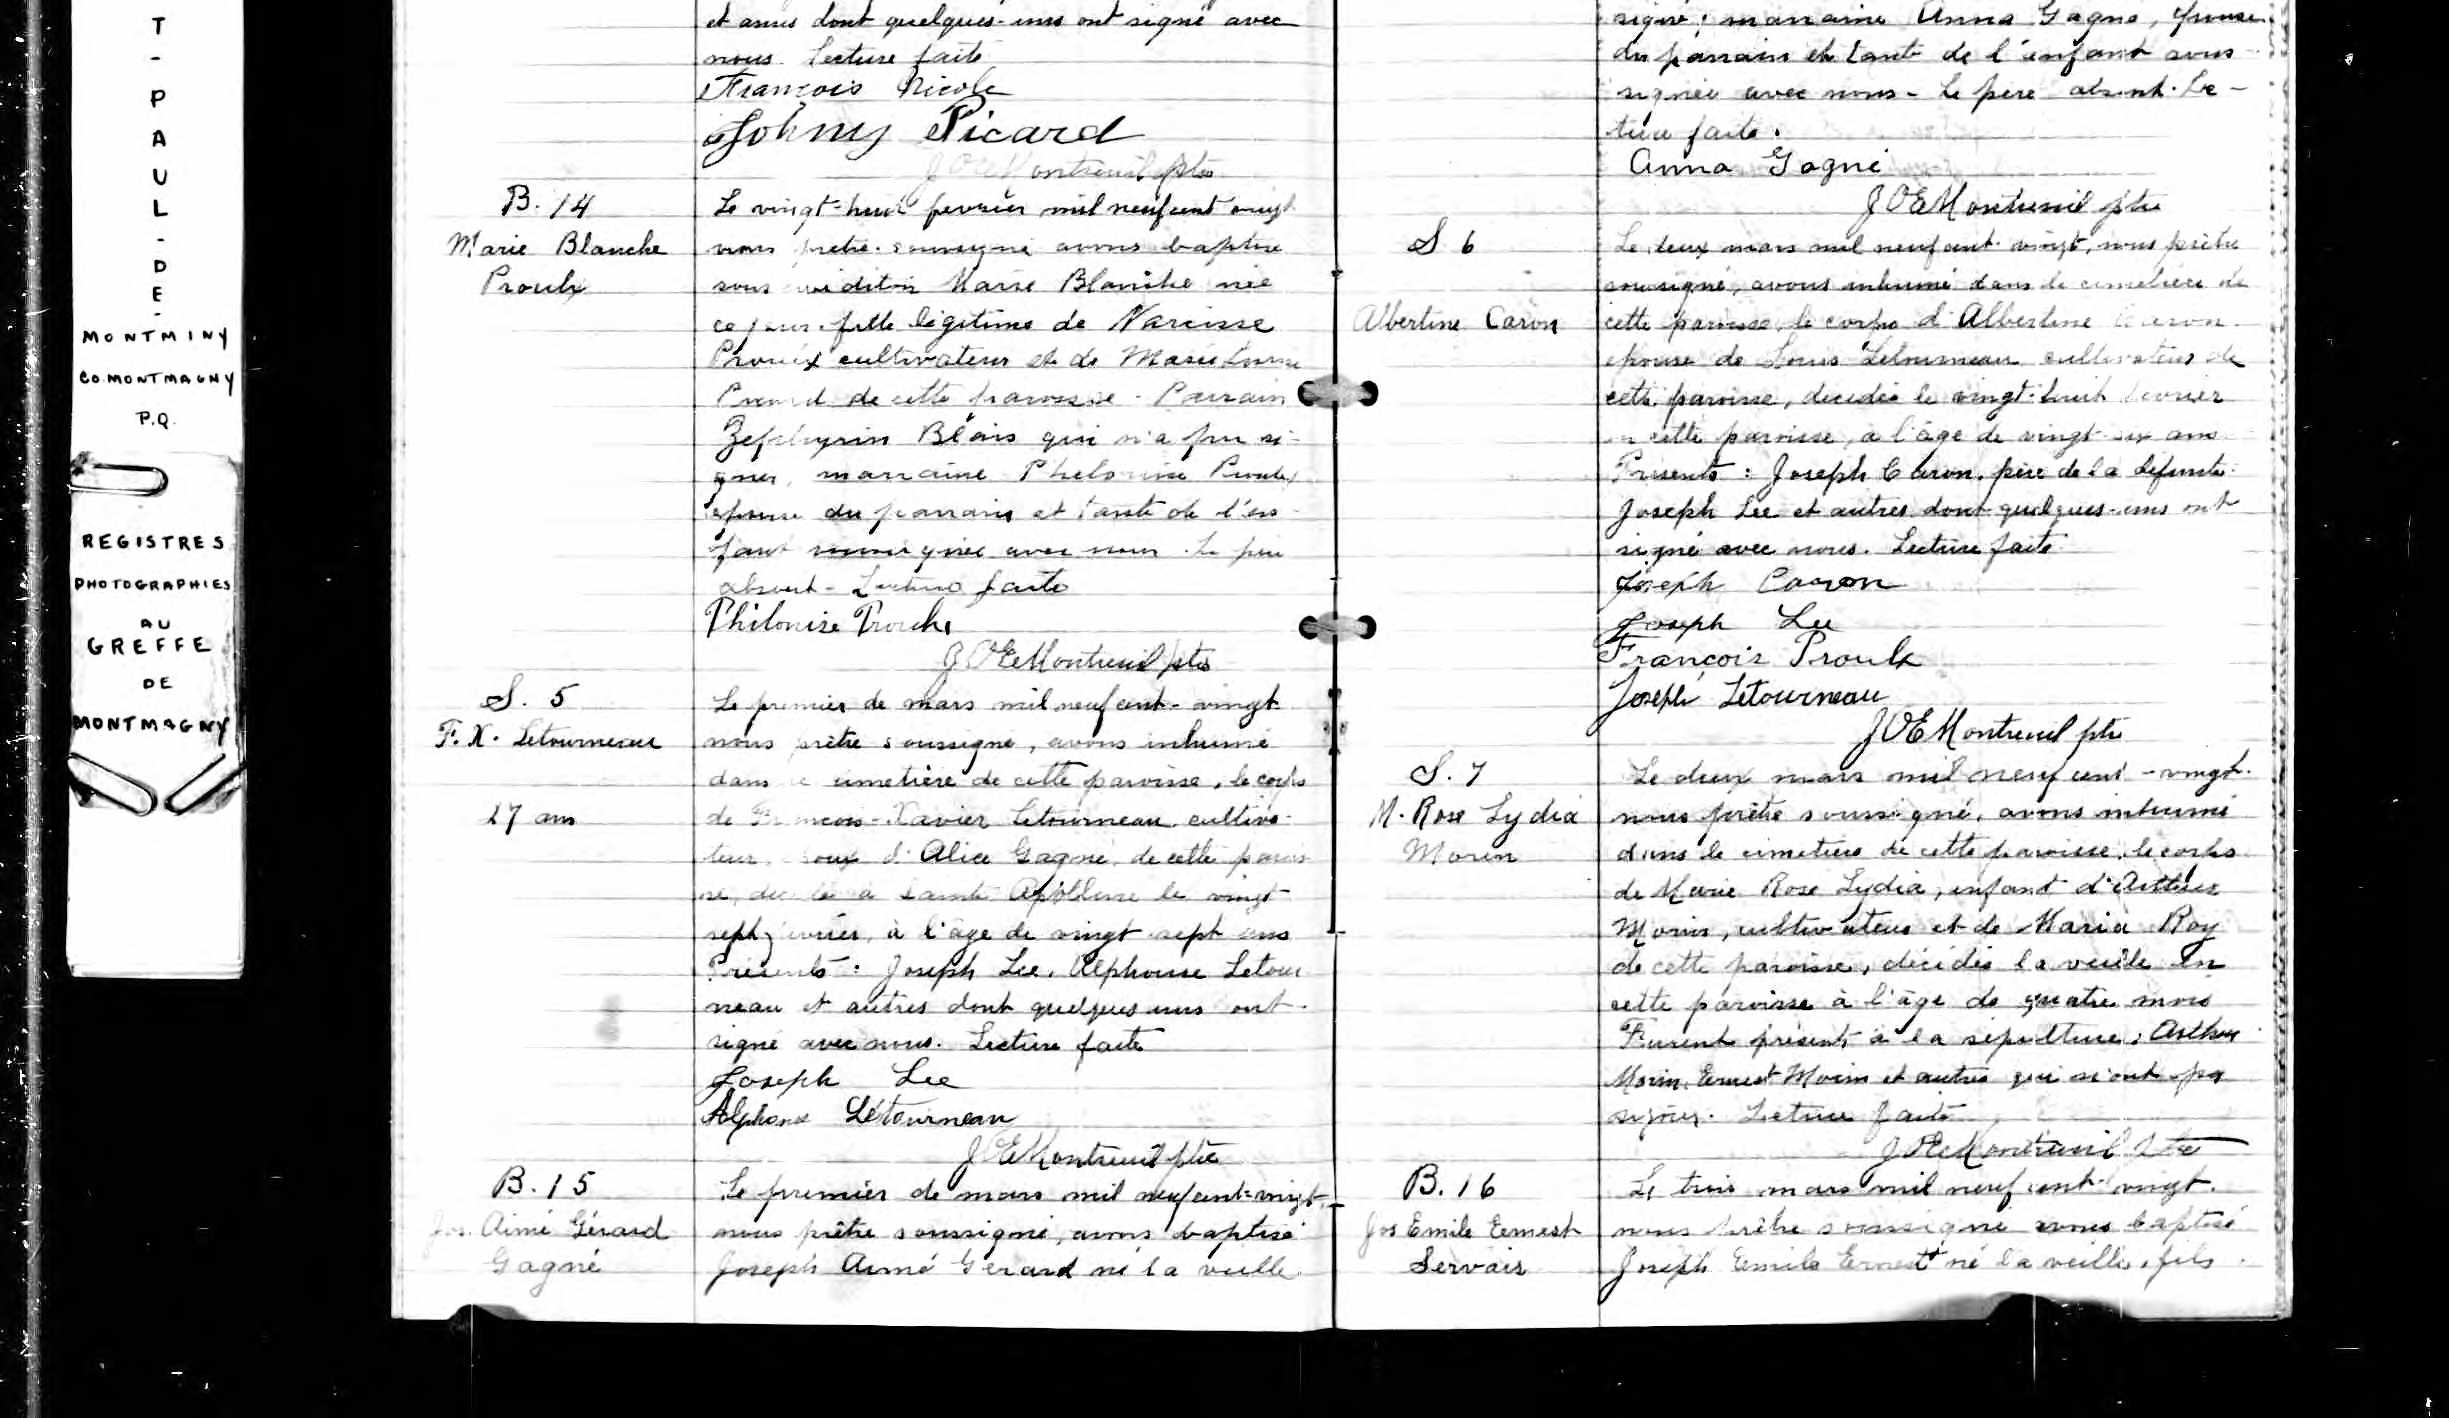 T
-
P
A
U
L
-
D
E
-
MONTMINY
CO. MONTMAGNY
P.Q.
REGISTRES
PHOTOGRAPHIES
AU
GREFFE
DE
MONTMAGNY
et amis dont quelques-uns ont signé avec
nous. Lecture faite
François Nicole
Johny Picard
J O E Montreuil ptre
B. 14
Marie Blanche
Proulx
Le vingt-huit fevrier mil neuf cent vingt
nous prêtre soussigné avons baptisé
sous condition Marie Blanche née
ce jour fille légitime de Narcisse
Proulx cultivateur et de Marie
de cette paroisse. Parrain
Zephyrin Blais qui n'a pu si-
gner, marraine Philonise Proulx
epouse du parrain et tante de l'en-
fant soussignée avec nous. Le père
absent - Lecture faite
Philonise Proulx
J O E Montreuil ptre
S. 5
F. X. Letourneau
27 ans
Le premier de mars mil neuf cent-vingt
nous prêtre soussigné, avons inhumé
dans le cimetière de cette paroisse, le corps
de François-Xavier Letourneau cultiva-
teur, époux d'Alice Gagné, de cette parois
se, décédé à Sainte Apolline le vingt
sept février, à l'âge de vingt sept ans
Présents : Joseph Lee, Alphonse Letour
neau et autres dont quelques uns ont
signé avec nous. Lecture faite
Joseph Lee
Alphonse Létourneau
J O E Montreuil ptre
B. 15
Jos. Aimé Gérard
Gagné
Le premier de mars mil neuf cent-vingt,
nous prêtre soussigné, avons baptisé
Joseph Aimé Gérard né la veille
signé ; marraine Anna Gagné, épouse
du parrain et tante de l'enfant sous-
signée avec nous - Le père absent. Lec-
ture faite.
Anna Gagné
J O E Montreuil ptre
S 6
Albertine Caron
Le deux mars mil neuf cent vingt, nous prêtre
soussigné, avons inhumé dans le cimetière de
cette paroisse le corps d'Albertine Caron
epouse de Louis Letourneau cultivateur de
cette paroisse, décédée le vingt-huit fevrier
en cette paroisse, à l'âge de vingt ans
Présents : Joseph Caron, père de la defunte
Joseph Lee et autres dont quelques-uns ont
signé avec nous. Lecture faite
Joseph Caron
Joseph Lee
François Proulx
Joseph Letourneau
J O E Montreuil ptre
S. 7
M. Rose Lydia
Morin
Le deux mars mil neuf cent-vingt
nous prêtre soussigné, avons inhumé
dans le cimetière de cette paroisse, le corps
de Marie Rose Lydia, enfant d'Arthur
Morin, cultivateur et de Maria Roy
de cette paroisse, décédée la veille en
cette paroisse à l'âge de quatre mois
Furent présents à la sépulture : Arthur
Morin, Ernest Morin et autres qui n'ont pu
signer. Lecture faite
J O E Montreuil Ptre
B. 16
Jos Emile Ernest
Servais
Le trois mars mil neuf cent-vingt.
nous prêtre soussigné avons baptisé
Joseph Emile Ernest né la veille, fils